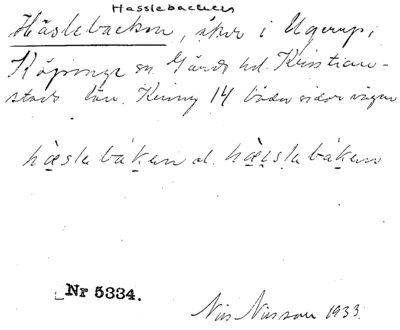 Hasslebacken
Häslebacken, åker i Ugerup,
Köpinge sn Gärds hd. Kristian-
stads län. Kring 14 båda sidor vägen
hæslabákan el. hæi̯slabákan
Nr 5334.
Nils Nilsson 1933.